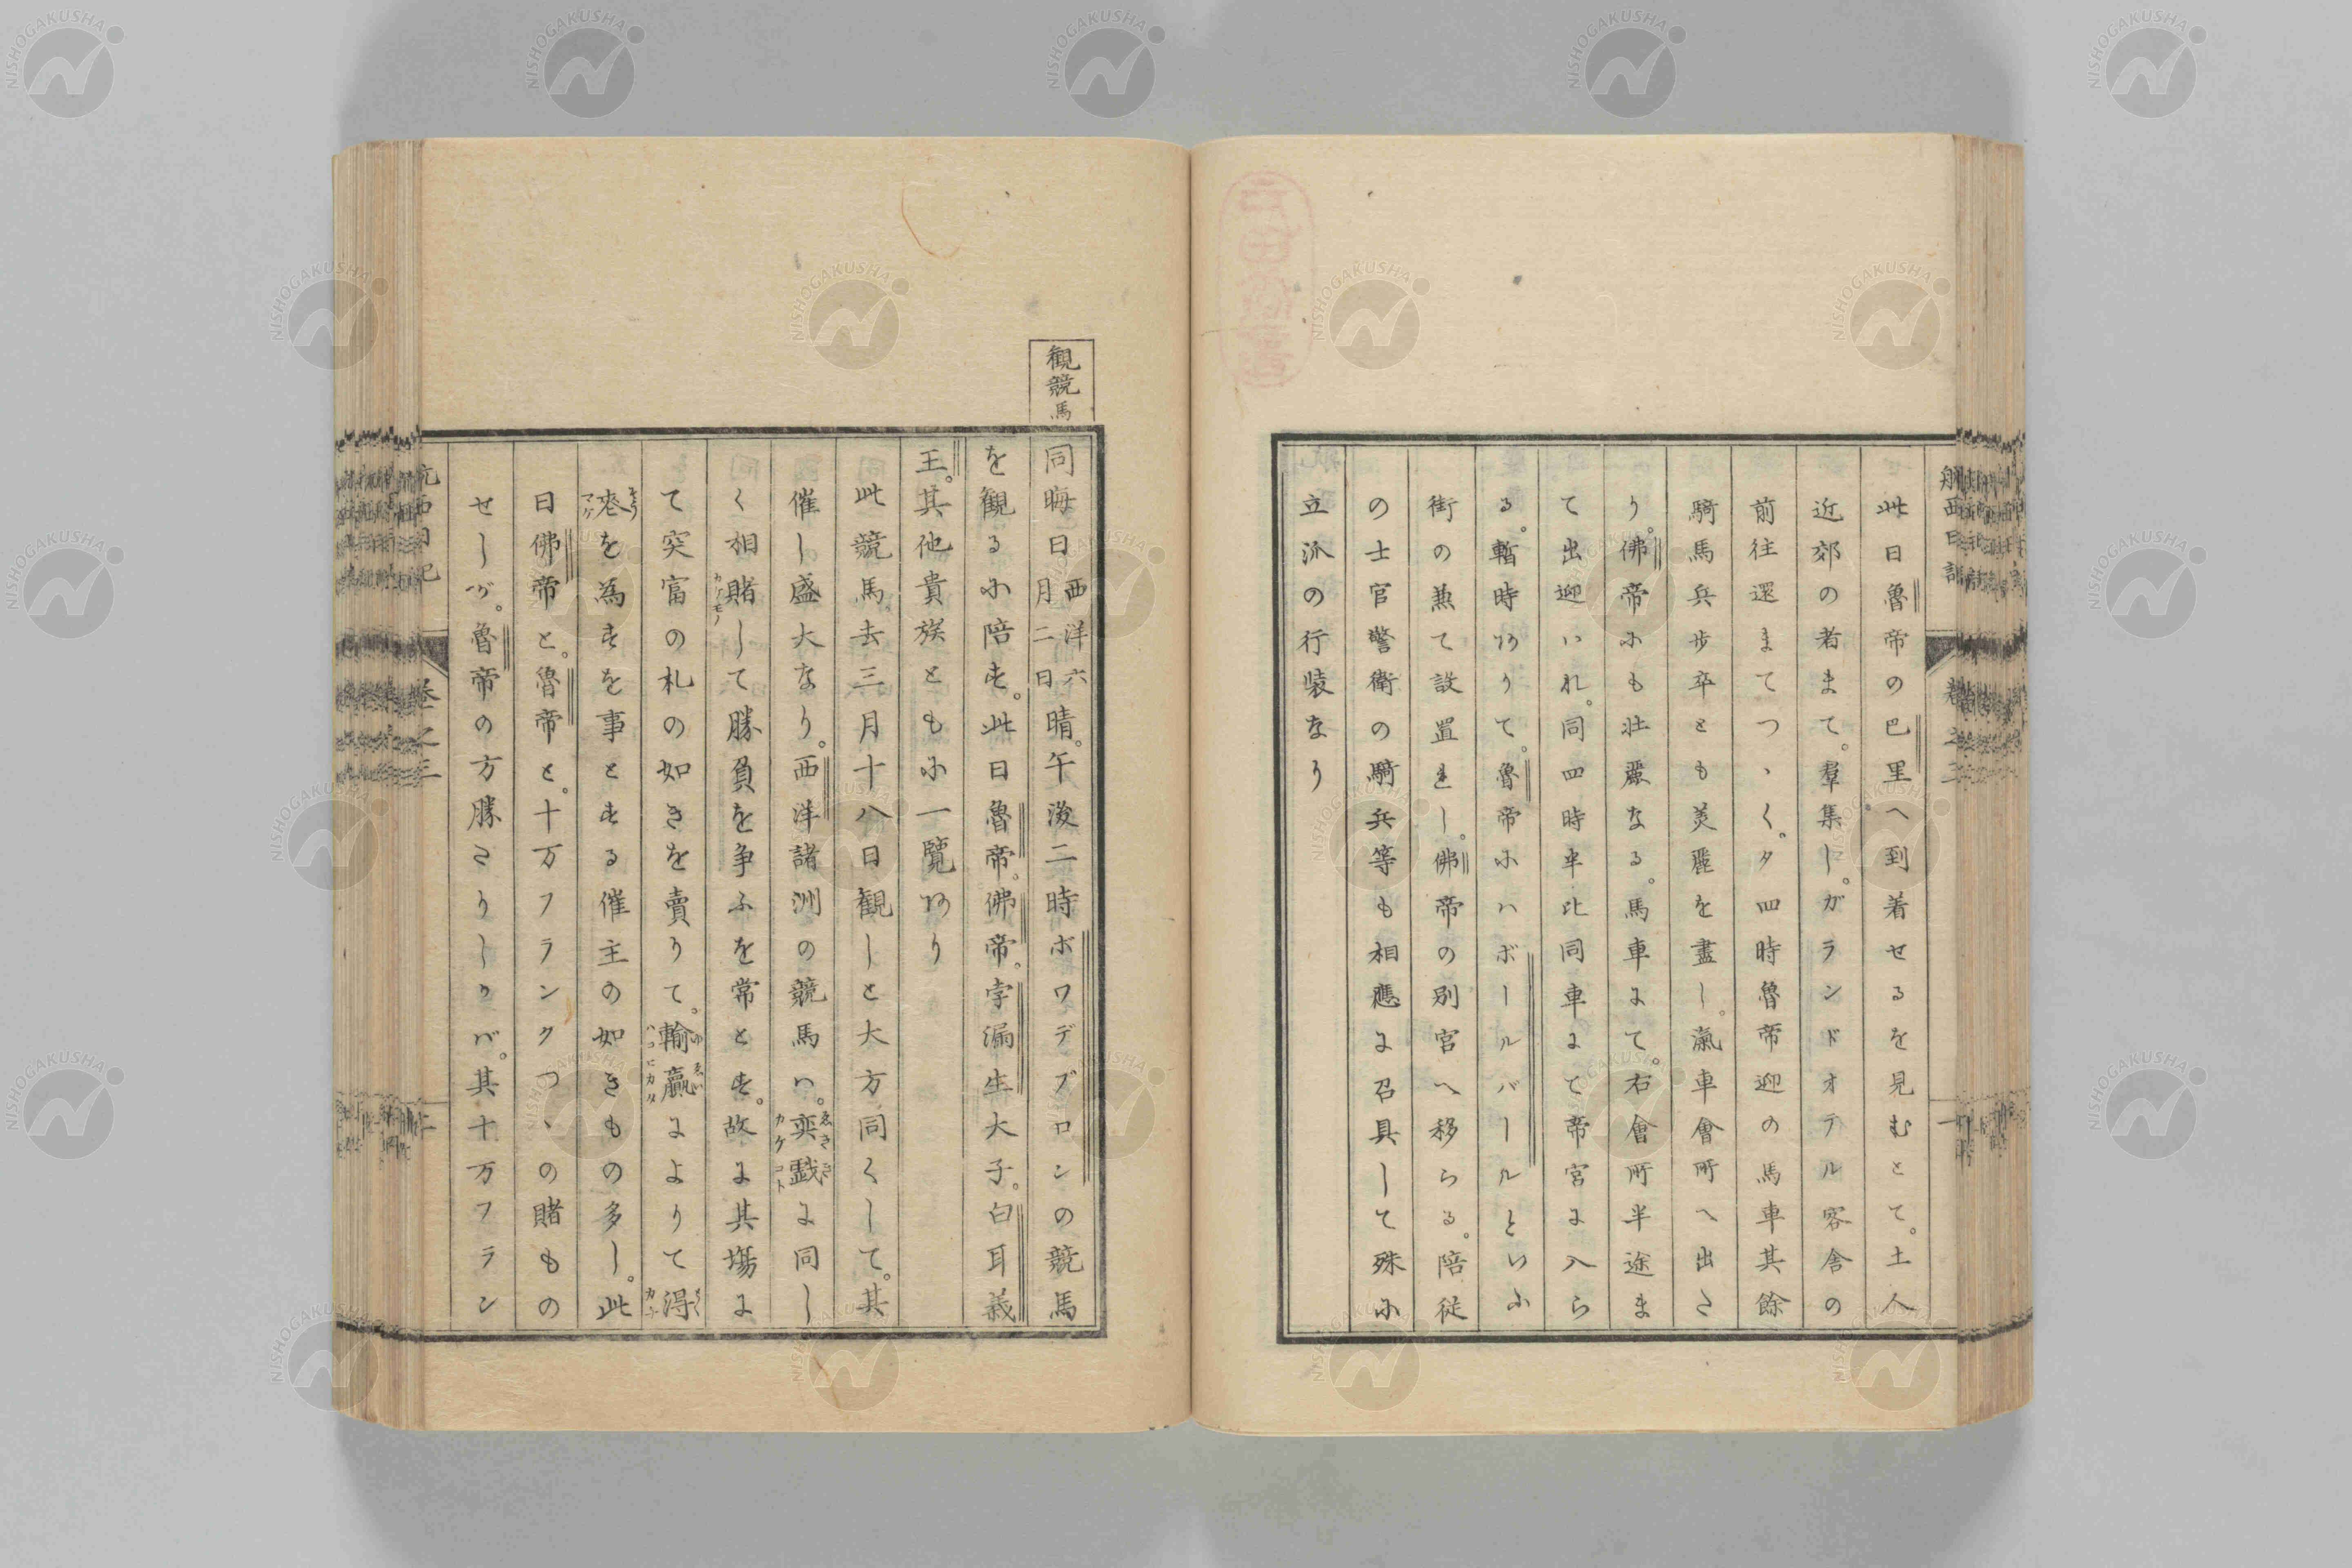 此日魯帝の巴里へ到着せるを見むとて。土人
近郊の者まて。羣集し。ガランドオテル客舎の
前往還まてつゝく。夕四時魯帝迎の馬車其餘
騎馬兵歩卒とも美麗を盡し。瀛車會所へ出さ
り。佛帝にも壮麗なる。馬車にて。右會所半途ま
て出迎いれ。同四時半比同車にて帝宮に入ら
る。暫時ありて。魯帝にハボールバールといふ
街の兼て設置きし。佛帝の別宮へ移らる。陪従
の士官警衛の騎兵等も相應に召具して殊に
立派の行装なり
観競馬
同晦日西洋六月二日晴。午後二時ボワデブロンの競馬
を観るに陪す。此日魯帝。佛帝。孛漏生大子。白耳義
王。其他貴族ともに一覧あり
此競馬。去三月十八日観しと大方同くして。其
催し盛大なり。西洋諸洲の競馬ハ。奕戯に同し
く相賭して勝負を争ふを常とす。故に其場に
て突富の札の如きを賣りて。輸贏によりて得
喪を為すを事とする催主の如きもの多し。此
日佛帝と。魯帝と。十万フランクつゝの賭もの
せしが。魯帝の方勝さりしかバ。其十万フラン
航西日記
巻之三